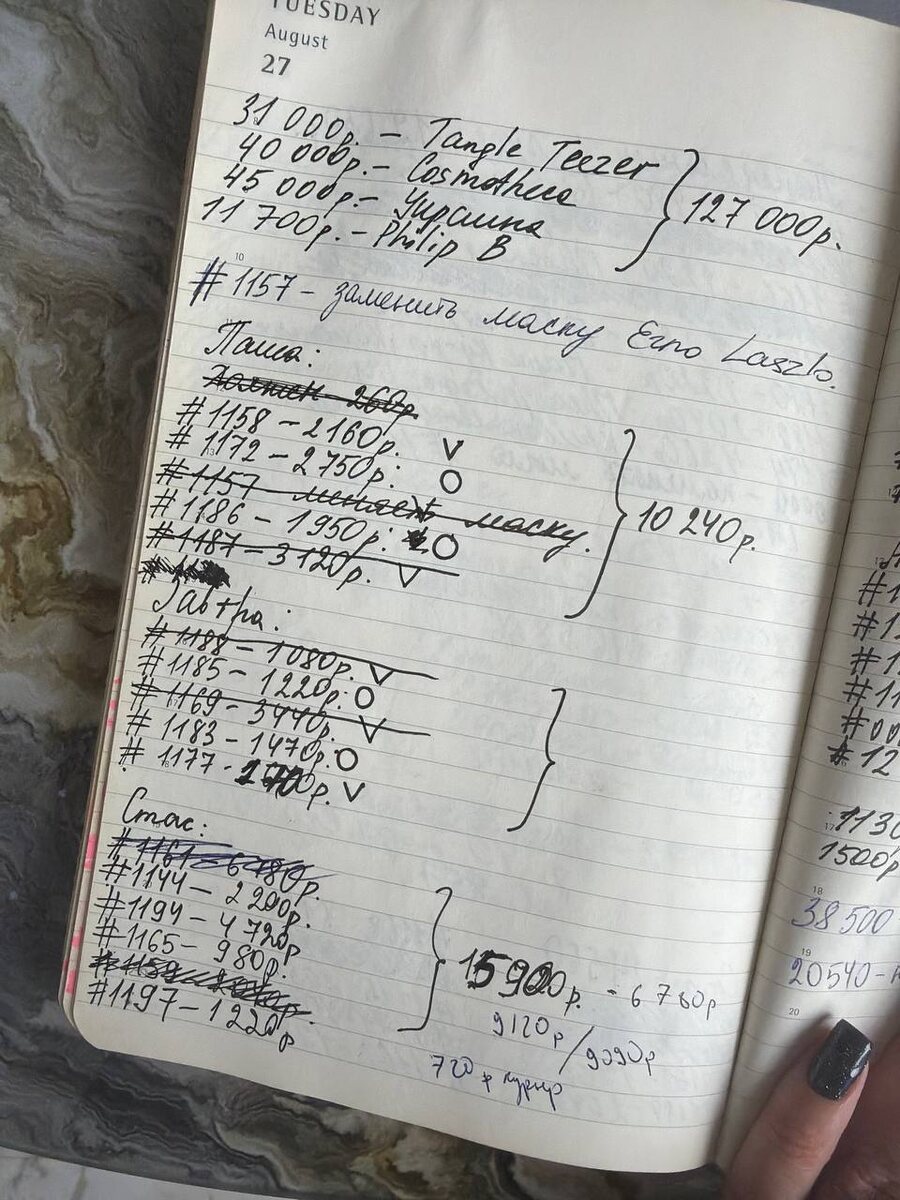 TUESDAY
August
27
31 000р. – Tangle Teezer
40 000р. – Cosmotheca
45 000р. – Украина
11 700р. – Philip B
127 000р.
10
#1157 – заменить маску Erno Laszlo.
Паша:
260р
#1158 – 2160р. V
#1172 – 2 750р. O
#1157 – меняет маску.
#1186 – 1 950р. O
#1187 – 3 120р. V
10 240р.
#1188 – 1 080р. V
#1185 – 1 220р. O
#1169 – 3 440р. V
#1183 – 1 470р. O
#1177 – р. V
Стас:
#1161 – 6 780р.
#1144 – 2 200р.
#1194 – 4 720р
#1165 – 980р.
#1197 – 1 220р
15 900р. - 6 780р
9120р / 9390р
720 р курьер
#1
#1
#1
#11
#00
# 12
1130
17
1500р
18
38 500
19
20540 –
20